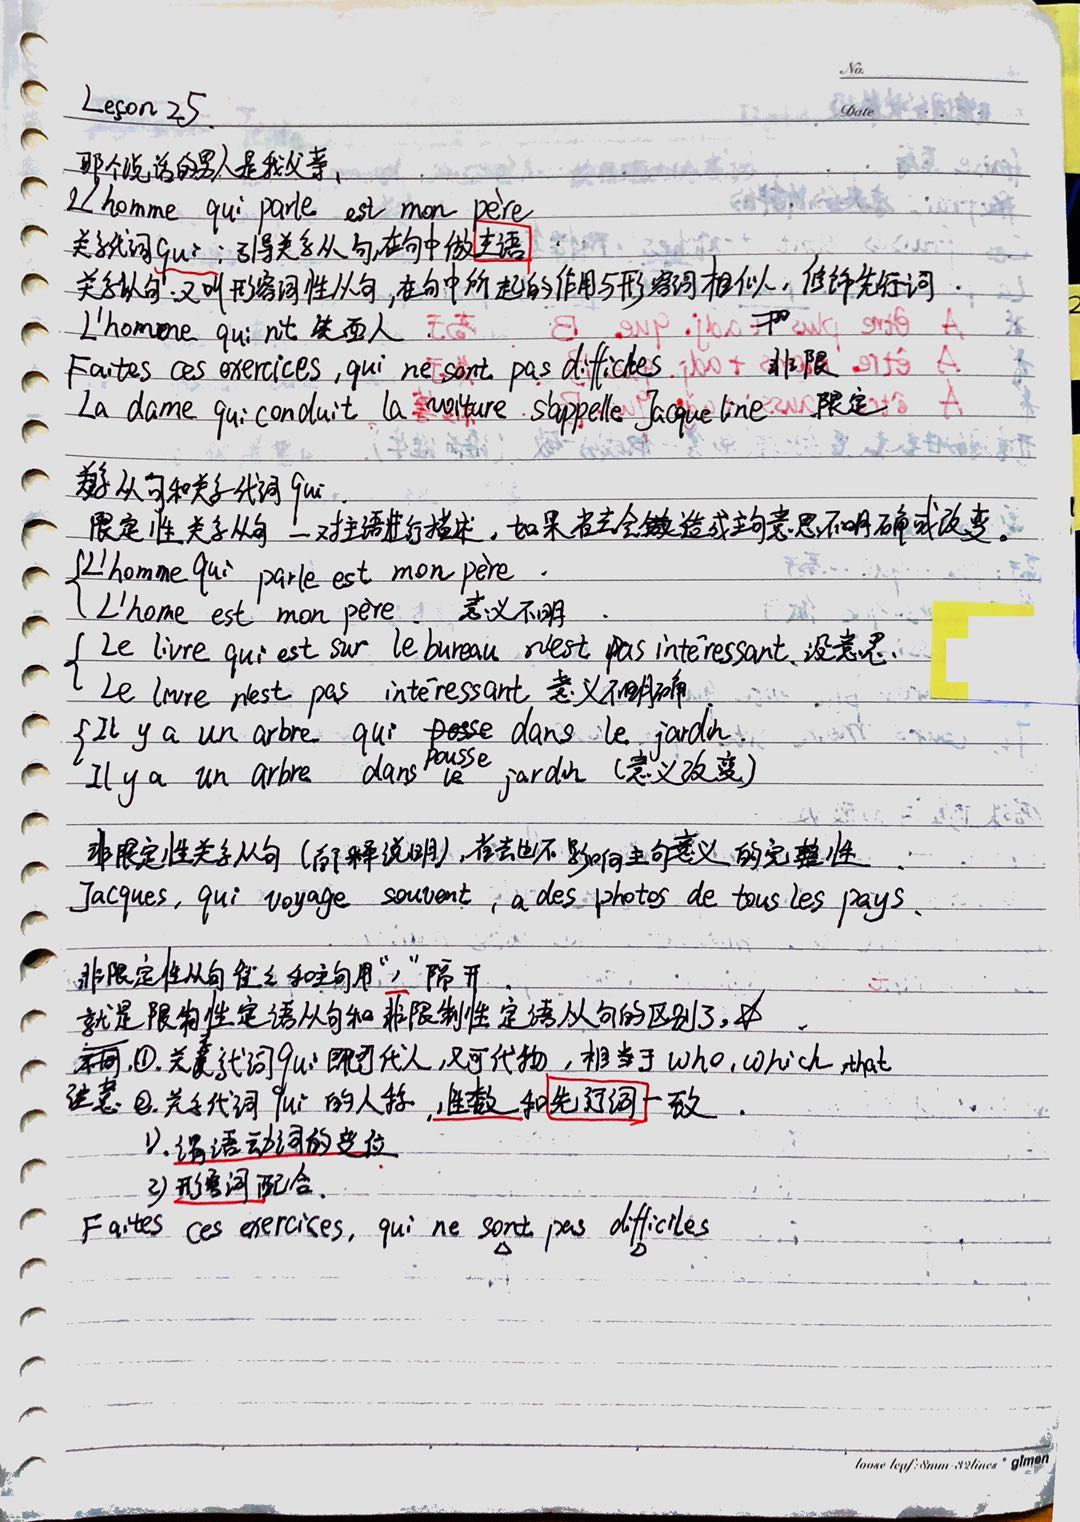 No.
Date
Leçon 25
那个说话的男人是我父亲、
L'homme qui parle est mon père
关系代词qui：引导关系从句,在句中做主语
关系从句.又叫形容词性从句,在句中所起的作用与形容词相似、修饰先行词.
L'homme qui rit 笑面人
Faites ces exercices, qui ne sont pas difficiles 非限
La dame qui conduit la voiture s'appelle Jacqueline 限定
关系从句和关系代词qui.
限定性关系从句 — 对主语进行描述，如果省去会造成主句意思不明确或改变。
L'homme qui parle est mon père .
L'home est mon père. 意义不明 .
Le livre qui est sur le bureau n'est pas intéressant. 没意思.
Le livre n'est pas intéressant 意义不明确
Il y a un arbre qui pousse dans le jardin.
Il y a un arbre dans le jardin (意义改变)
非限定性关系从句 (解释说明), 省去也不影响主句意义的完整性
Jacques, qui voyage souvent, a des photos de tous les pays.
非限定性从句 和主句用“,”隔开
就是限制性定语从句和非限制性定语从句的区别了,☆ .
注意 ①.关系代词qui 既可代人,又可代物, 相当于who, which, that
②.关系代词 qui 的人称,性数和先行词一致 .
1).谓语动词的变位
2) 形容词配合.
Faites ces exercices, qui ne sont pas difficiles
loose leaf:8mm·32lines * glmen